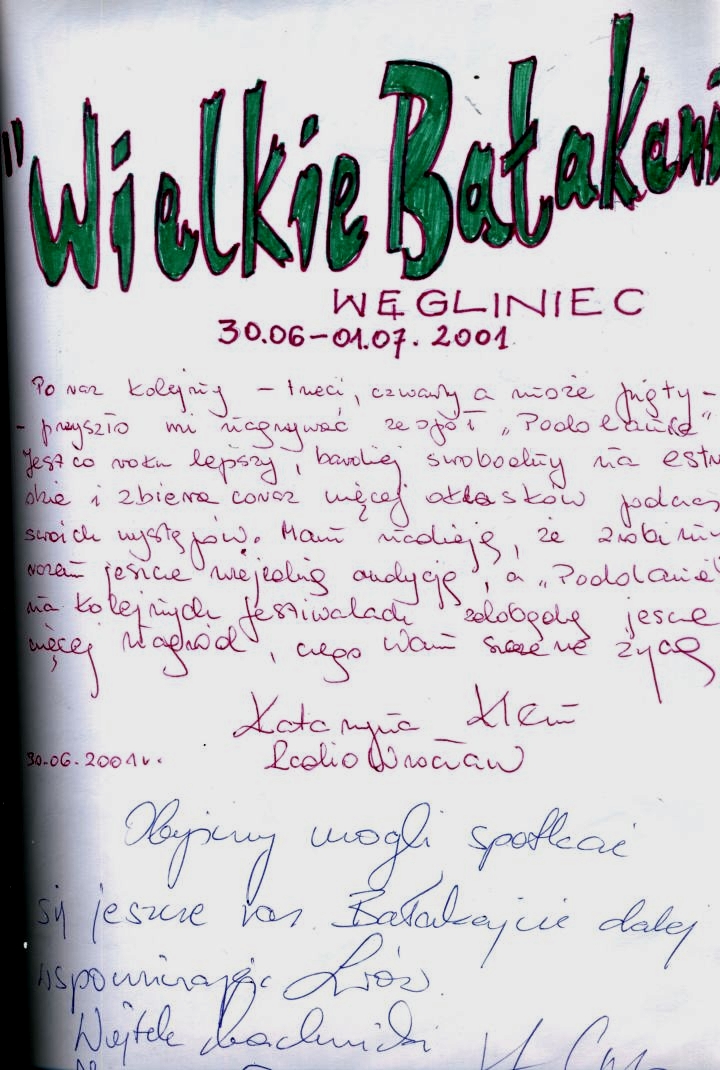 "Wielkie Bałakani
WĘGLINIEC
30.06-01.07.2001
Po raz kolejny - trzeci, czwarty a może piąty -
- przyszło mi nagrywać zespół „Podolanie"
Jest co roku lepszy, bardziej swobodny na estra
dzie i zbiera coraz więcej oklasków podczas
swoich występów. Mam nadzieję, że zrobimy
razem jeszcze niejedną audycję, a „Podolanie"
na kolejnych festiwalach zdobędą jeszcze
więcej nagród, czego Wam szczerze życzę
Katarzyna Klem
Radio Wrocław
30.06.2001r.
Obyśmy mogli spotkać
się jeszcze raz. Bałakajcie dalej
wspominając Lwów.
Wojtek